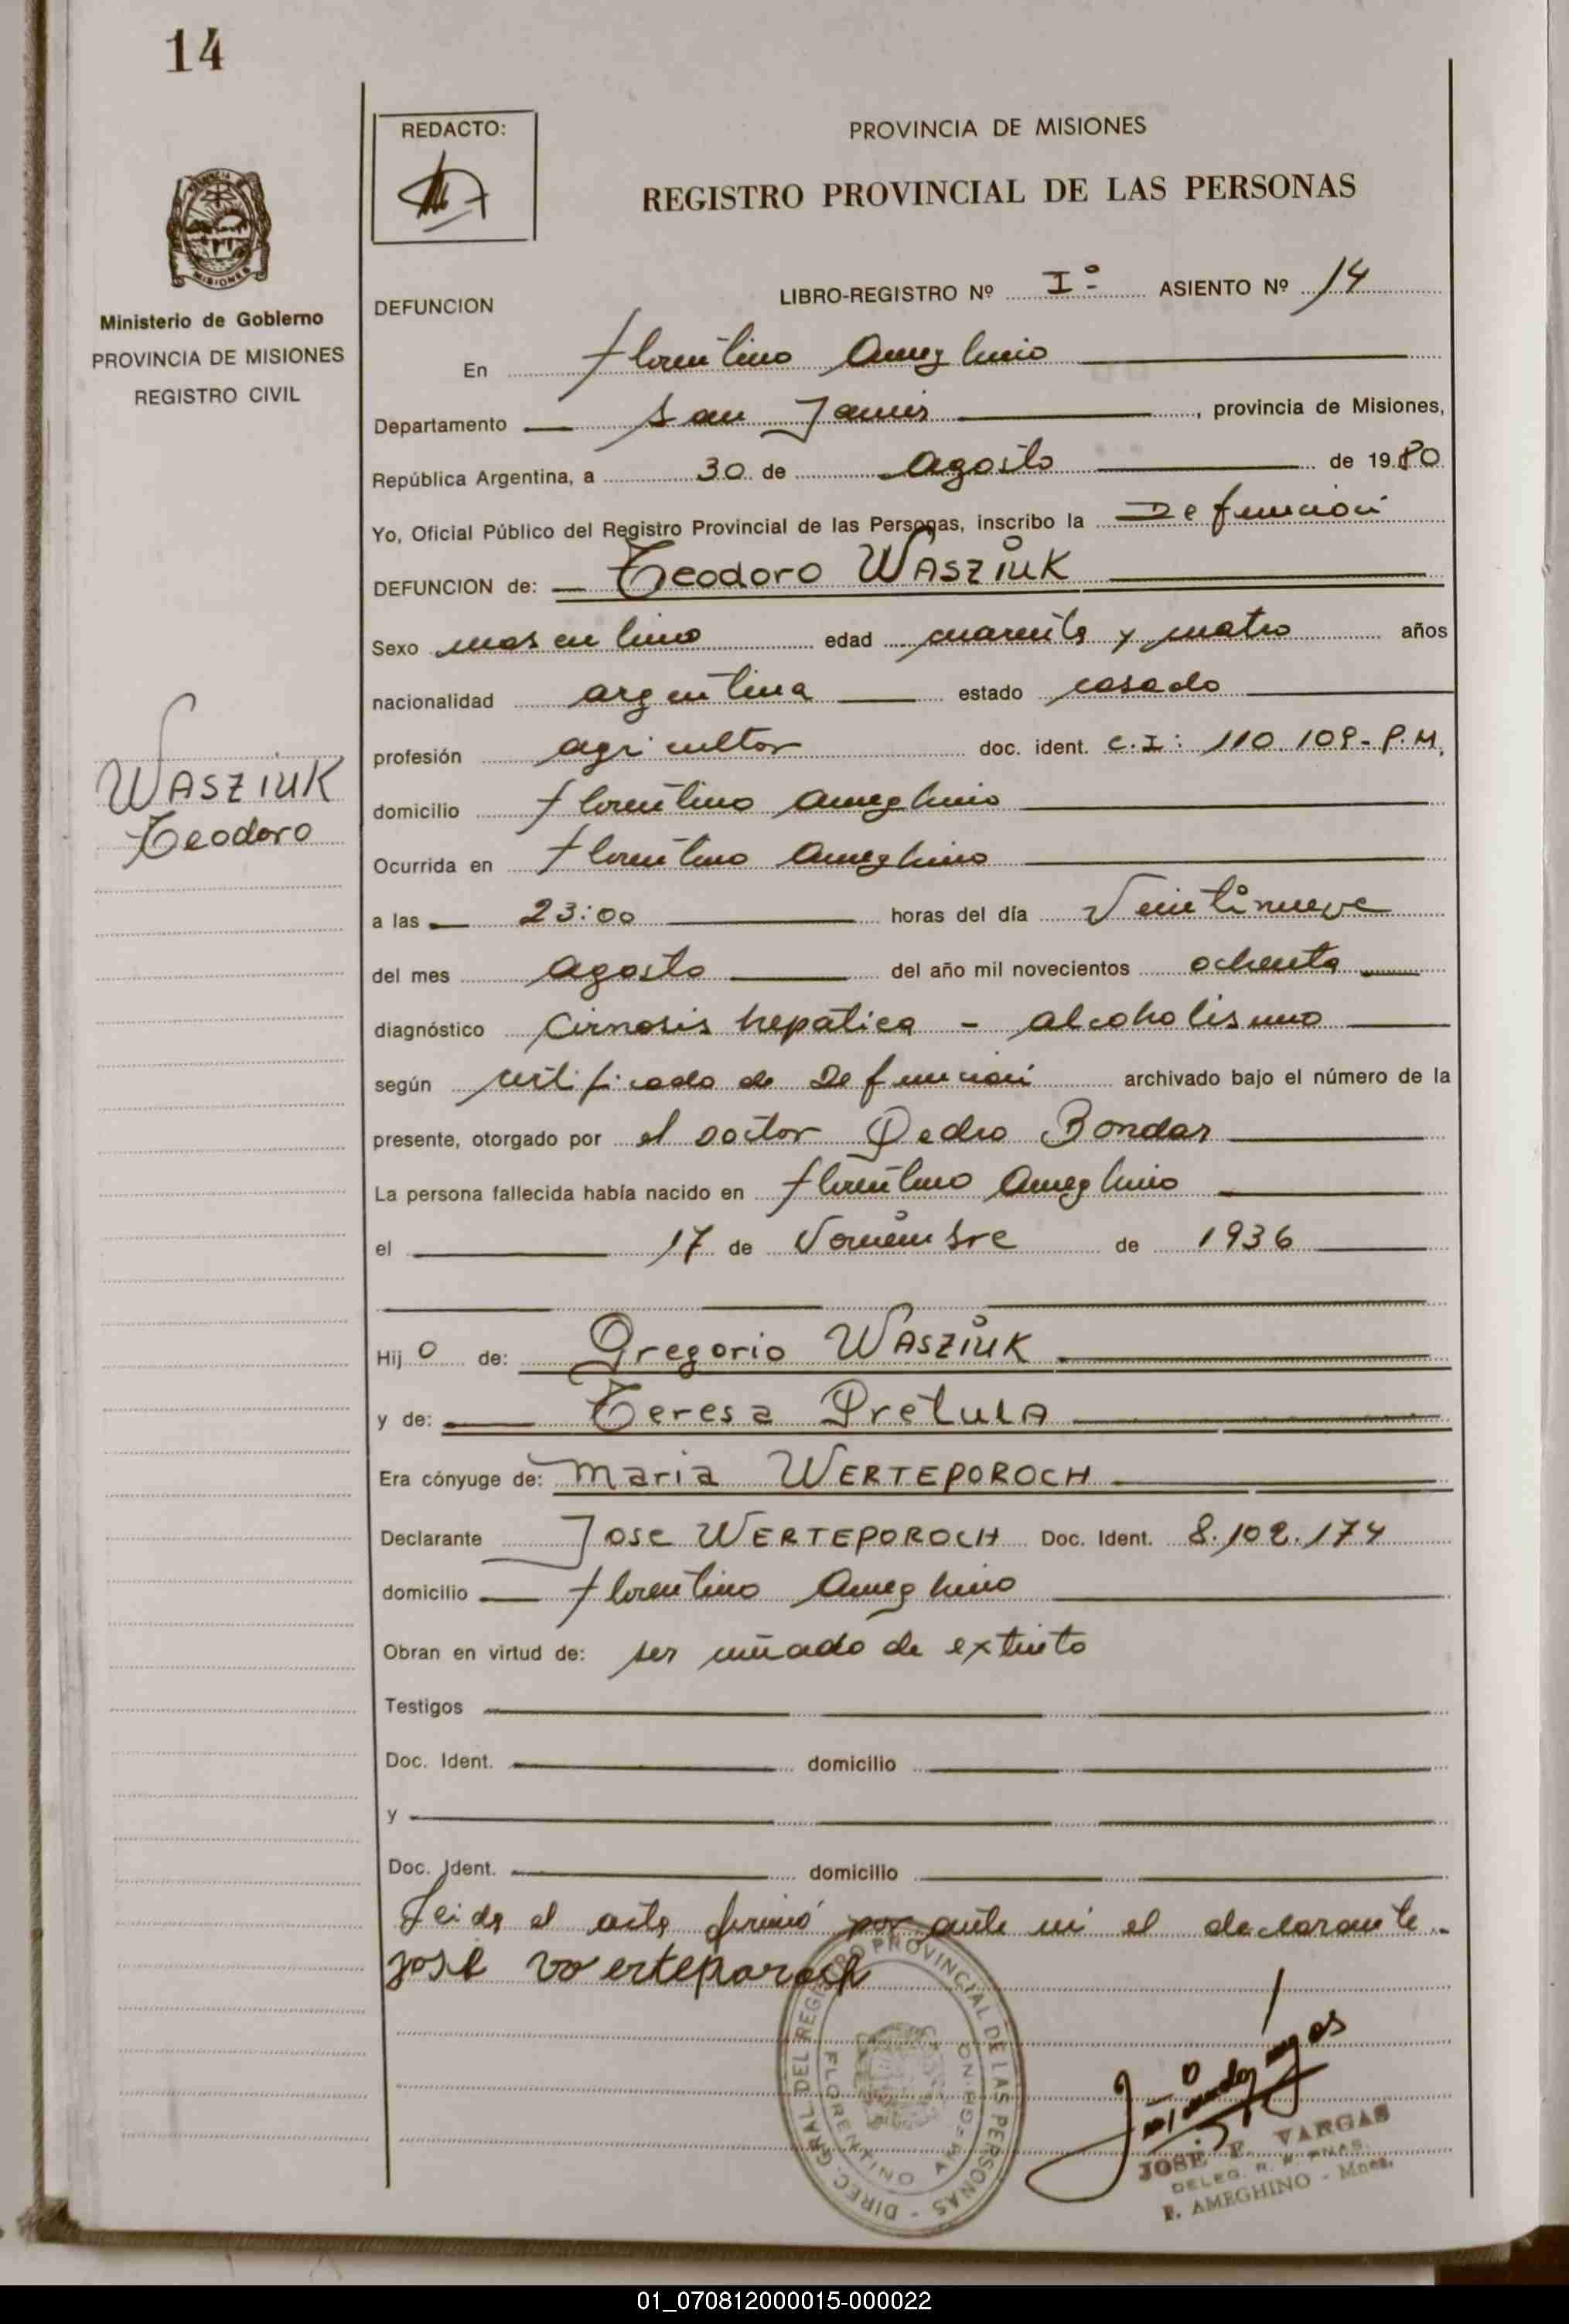 14
REDACTO:
PROVINCIA DE MISIONES
REGISTRO PROVINCIAL DE LAS PERSONAS
MISIONES
Ministerio de Gobierno
PROVINCIA DE MISIONES
REGISTRO CIVIL
DEFUNCION
LIBRO-REGISTRO Nº Iº ASIENTO Nº 14
En Florentino Ameghino
Departamento San Javier, provincia de Misiones,
República Argentina, a 30 de Agosto de 1980
Yo, Oficial Público del Registro Provincial de las Personas, inscribo la Defunción
DEFUNCION de: Teodoro WASZIUK
Sexo masculino edad cuarenta y cuatro años
nacionalidad argentina estado casado
profesión agricultor doc. ident. C.I: 110.109-P.M,
WASZIUK
Teodoro
domicilio Florentino Ameghino
Ocurrida en Florentino Ameghino
a las 23:00 horas del día Veintinueve
del mes Agosto del año mil novecientos ochenta
diagnóstico Cirrosis hepatica - alcoholismo
según certificado de Defunción archivado bajo el número de la
presente, otorgado por el Doctor Pedro Bondar
La persona fallecida había nacido en Florentino Ameghino
el 17 de Noviembre de 1936
Hijo de: Gregorio WASZIUK
y de: Teresa Pretula
Era cónyuge de: Maria WERTEPOROCH
Declarante Jose WERTEPOROCH Doc. Ident. 8.102.174
domicilio Florentino Ameghino
Obran en virtud de: ser cuñado de extinto
Testigos
Doc. Ident. domicilio
y
Doc. Ident. domicilio
Leida el acta firmó por ante mi el declarante.
José Woerteporoch
DIREC. GRAL DEL REGISTRO PROVINCIAL DE LAS PERSONAS -
FLORENTINO AMEGHINO
JOSE F. VARGAS
DELEG. R. P. PNAS.
F. AMEGHINO - Mnes.
01_070812000015-000022